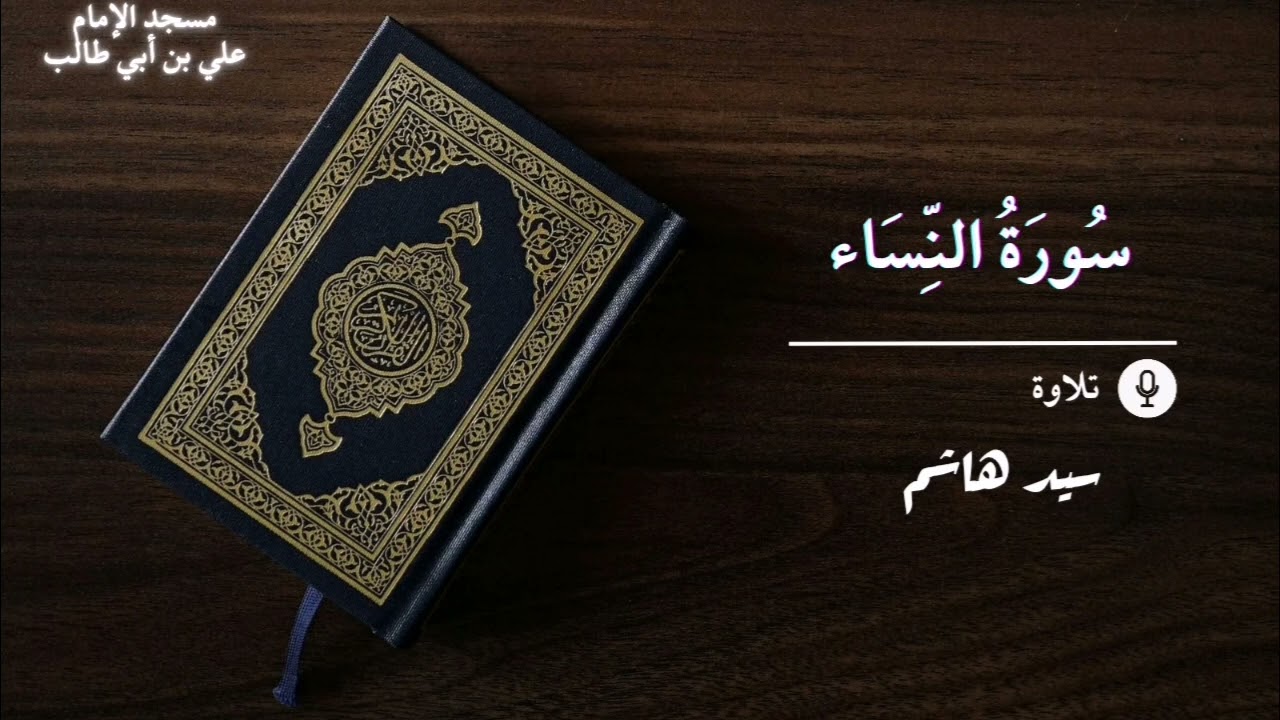 مسجد الإمام
علي بن أبي طالب
سُورَةُ النِّسَاء
تلاوة
سيد هاشم